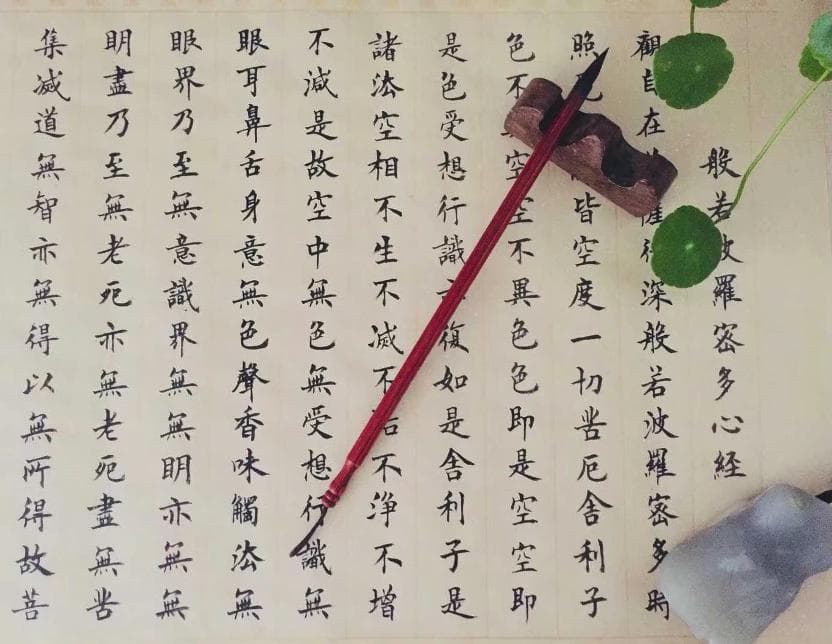 般若波羅密多心経
觀自在薩行深般若波羅密多時
照皆空度一切苦厄舍利子
色不空空不異色色即是空空即
是色受想行識亦復如是舍利子是
諸法空相不生不滅不不淨不增
不減是故空中無色無受想行識無
眼耳鼻舌身意無色聲香味觸法無
眼界乃至無意識界無無明亦無無
明盡乃至無老死亦無老死盡無苦
集滅道無智亦無得以無所得故菩